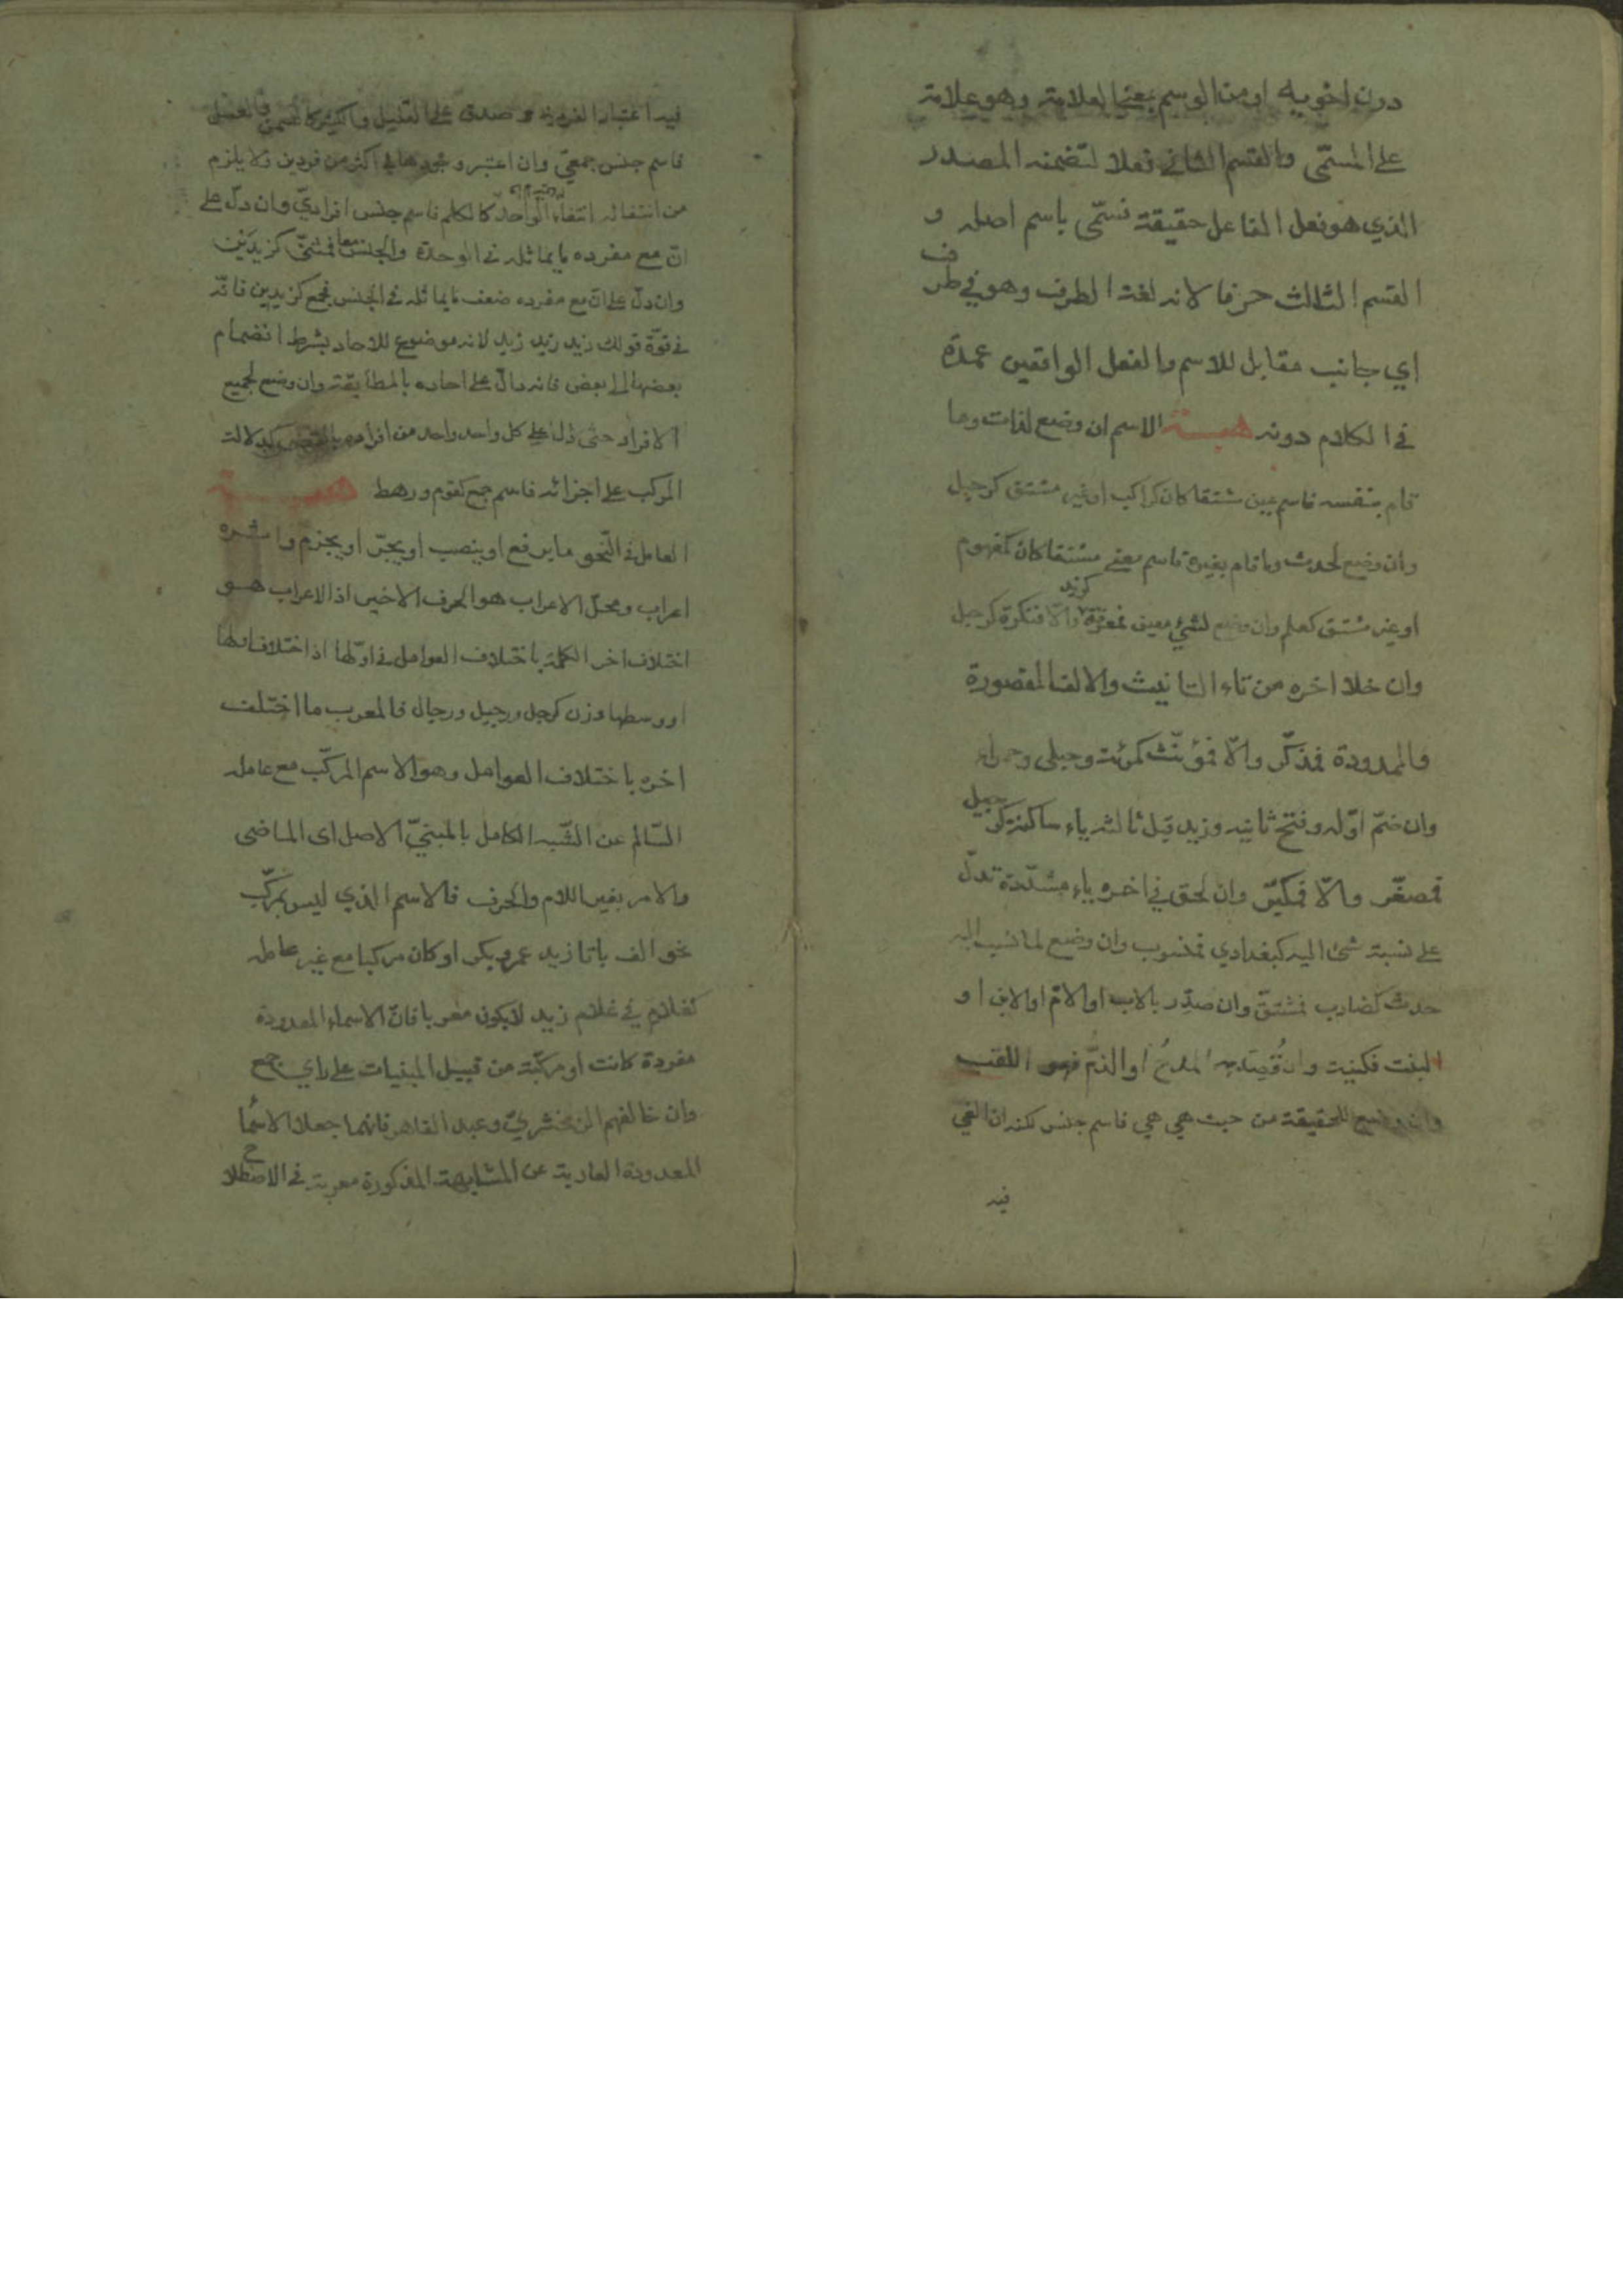 دون اخويه او من الوسم بمعنى العلامة وهو علامة
على المسمّى والقسم الثاني فعلا لتضمنه المصدر
الذي هو فعل الفاعل حقيقة فسمّى باسم اصله و
القسم الثالث حرفا لانه لغة الطرف وهو في طرف
اي جانب مقابل للاسم والفعل الواقعين عمدة
في الكلام دونه الاسم ان وضع لذات وما
قام بنفسه فاسم عين مشتقا كان كراكب او غير مشتق كرجل
وان وضع لحدث وما قام بغيره فاسم معنى مشتقا كان كمفهوم
او غير مشتق كعلم وان وضع لشيء معين فمعرفة كزيد والّا فنكرة كرجل
وان خلا اخره من تاء التانيث والالف المقصورة
والممدودة فمذكّر والّا فمؤنّث وحبلى وحمراء
وان ضمّ اوّله وفتح ثانيه وزيد قبل ثالثه ياء ساكنة كرجيل
فمصغّر والّا فمكبّر وان لحق في اخره ياء مشدّدة تدلّ
على نسبة شئ اليه كبغدادي فمنسوب وان وضع لما نسب اليه
حدث كضارب فمشتقّ وان صدّر بالاب او الامّ او الابن او
البنت فكنيت وان قُصِدَ به المدحُ او الذمّ فهو اللقب
وان وضع للحقيقة من حيث هي هي فاسم جنس لكنه ان الغي
فيه
فيه اعتبار الفردية وصدق على القليل والكثير
فاسم جنس جمعيّ وان اعتبر وجودها في اكثر من فردين فلا يلزم
من انتفائه انتفاء الواحد كالكلم فاسم جنس افراديّ وان دلّ على
انّ مع مفرده ما يماثله في الوحدة والجنس معا فمثنّى كزيدَين
وان دلّ على انّ مع مفرده ضعف ما يماثله في الجنس فجمع كزيدين فانّه
في قوّة قولك زيد زيد زيد لانه موضوع للاحاد بشرط انضمام
بعضها الى بعض فانه دالّ على احاده بالمطابقة وان وضع لجميع
الافراد حتى دلّ على كل واحد واحد من افراده كدلالة
المركب على اجزائه فاسم جمع كقوم ورهط
العامل في النحو ما يرفع او ينصب او يجرّ او يجزم واثره
اعراب ومحلّ الاعراب هو الحرف الاخير اذ الاعراب هو
اختلاف اخر الكلمة باختلاف العوامل في اوّلها اذ اختلاف اولها
او وسطها وزن كرجل ورجيل ورجال فالمعرب ما اختلف
اخره باختلاف العوامل وهو الاسم المركّب مع عامله
السّالم عن الشّبه الكامل بالمبنيّ الاصل اى الماضى
والامر بغير اللام والحرف فالاسم الذي ليس بمركّب
نحو الف با تا زيد عمرو بكر او كان مركبا مع غير عامله
كغلام في غلام زيد لايكون معربا فانّ الاسماء المعدودة
مفردة كانت او مركّبة من قبيل المبنيات على راي جمع
وان خالفهم الزمخشريّ وعبد القاهر فانهما جعلا الاسما
المعدودة العارية عن المشابهة المذكورة معربة في الاصطلاح